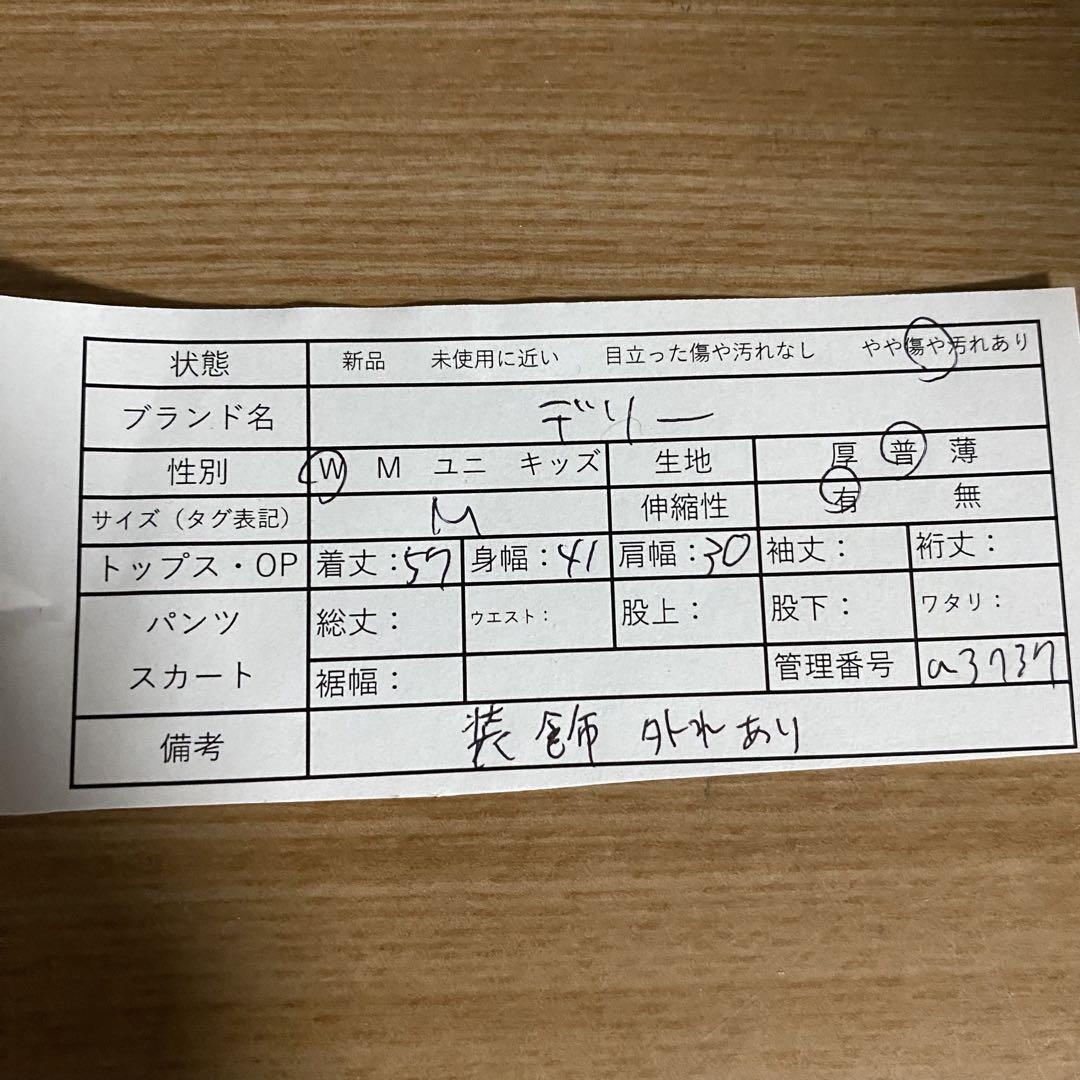 状態 新品 未使用に近い 目立った傷や汚れなし やや傷や汚れあり
ブランド名 デリー
性別 W M ユニ キッズ 生地 厚 普 薄
サイズ（タグ表記） M 伸縮性 有 無
トップス・OP 着丈：57 身幅：41 肩幅：30 袖丈： 裄丈：
パンツ 総丈： ウエスト： 股上： 股下： ワタリ：
スカート 裾幅： 管理番号 a3737
備考 装飾外れあり